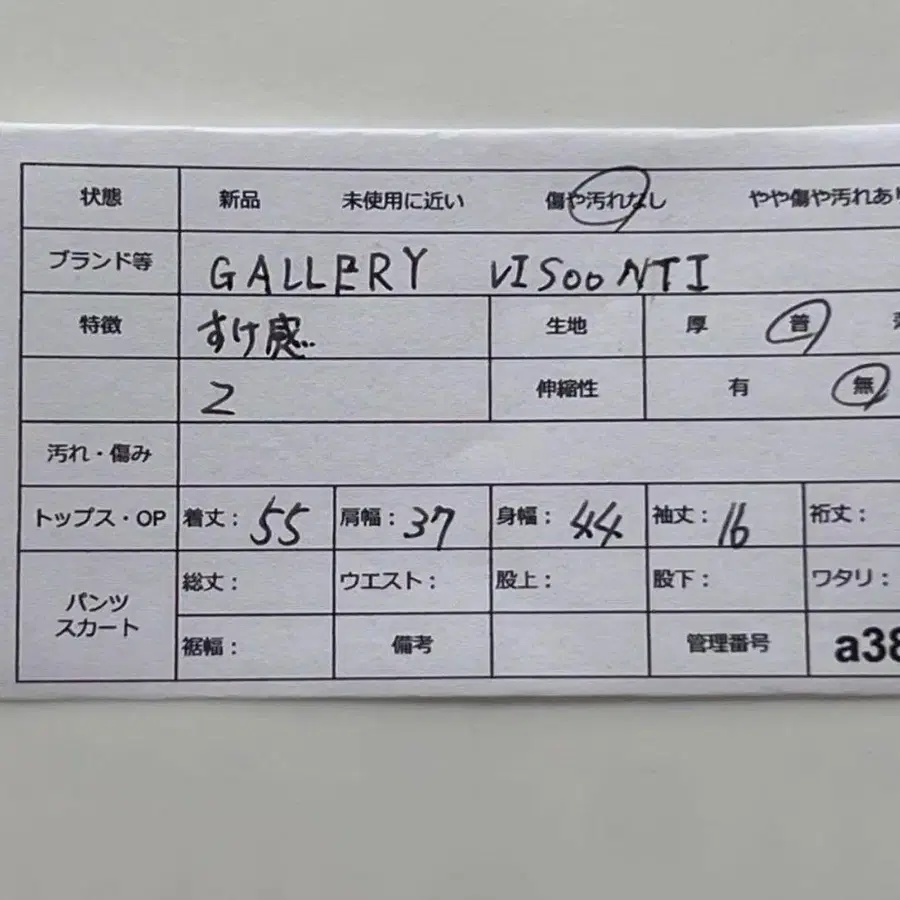 状態 新品 未使用に近い 傷や汚れなし やや傷や汚れあり
ブランド等 GALLERY VISOONTI
特徴 すけ感 生地 厚 普
2 伸縮性 有 無
汚れ・傷み
トップス・OP 着丈： 55 肩幅： 37 身幅： 44 袖丈： 16 裄丈：
パンツ
スカート
総丈： ウエスト： 股上： 股下： ワタリ：
裾幅： 備考 管理番号 a38